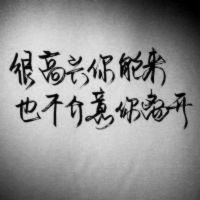 很高兴你能来
也不介意你离开